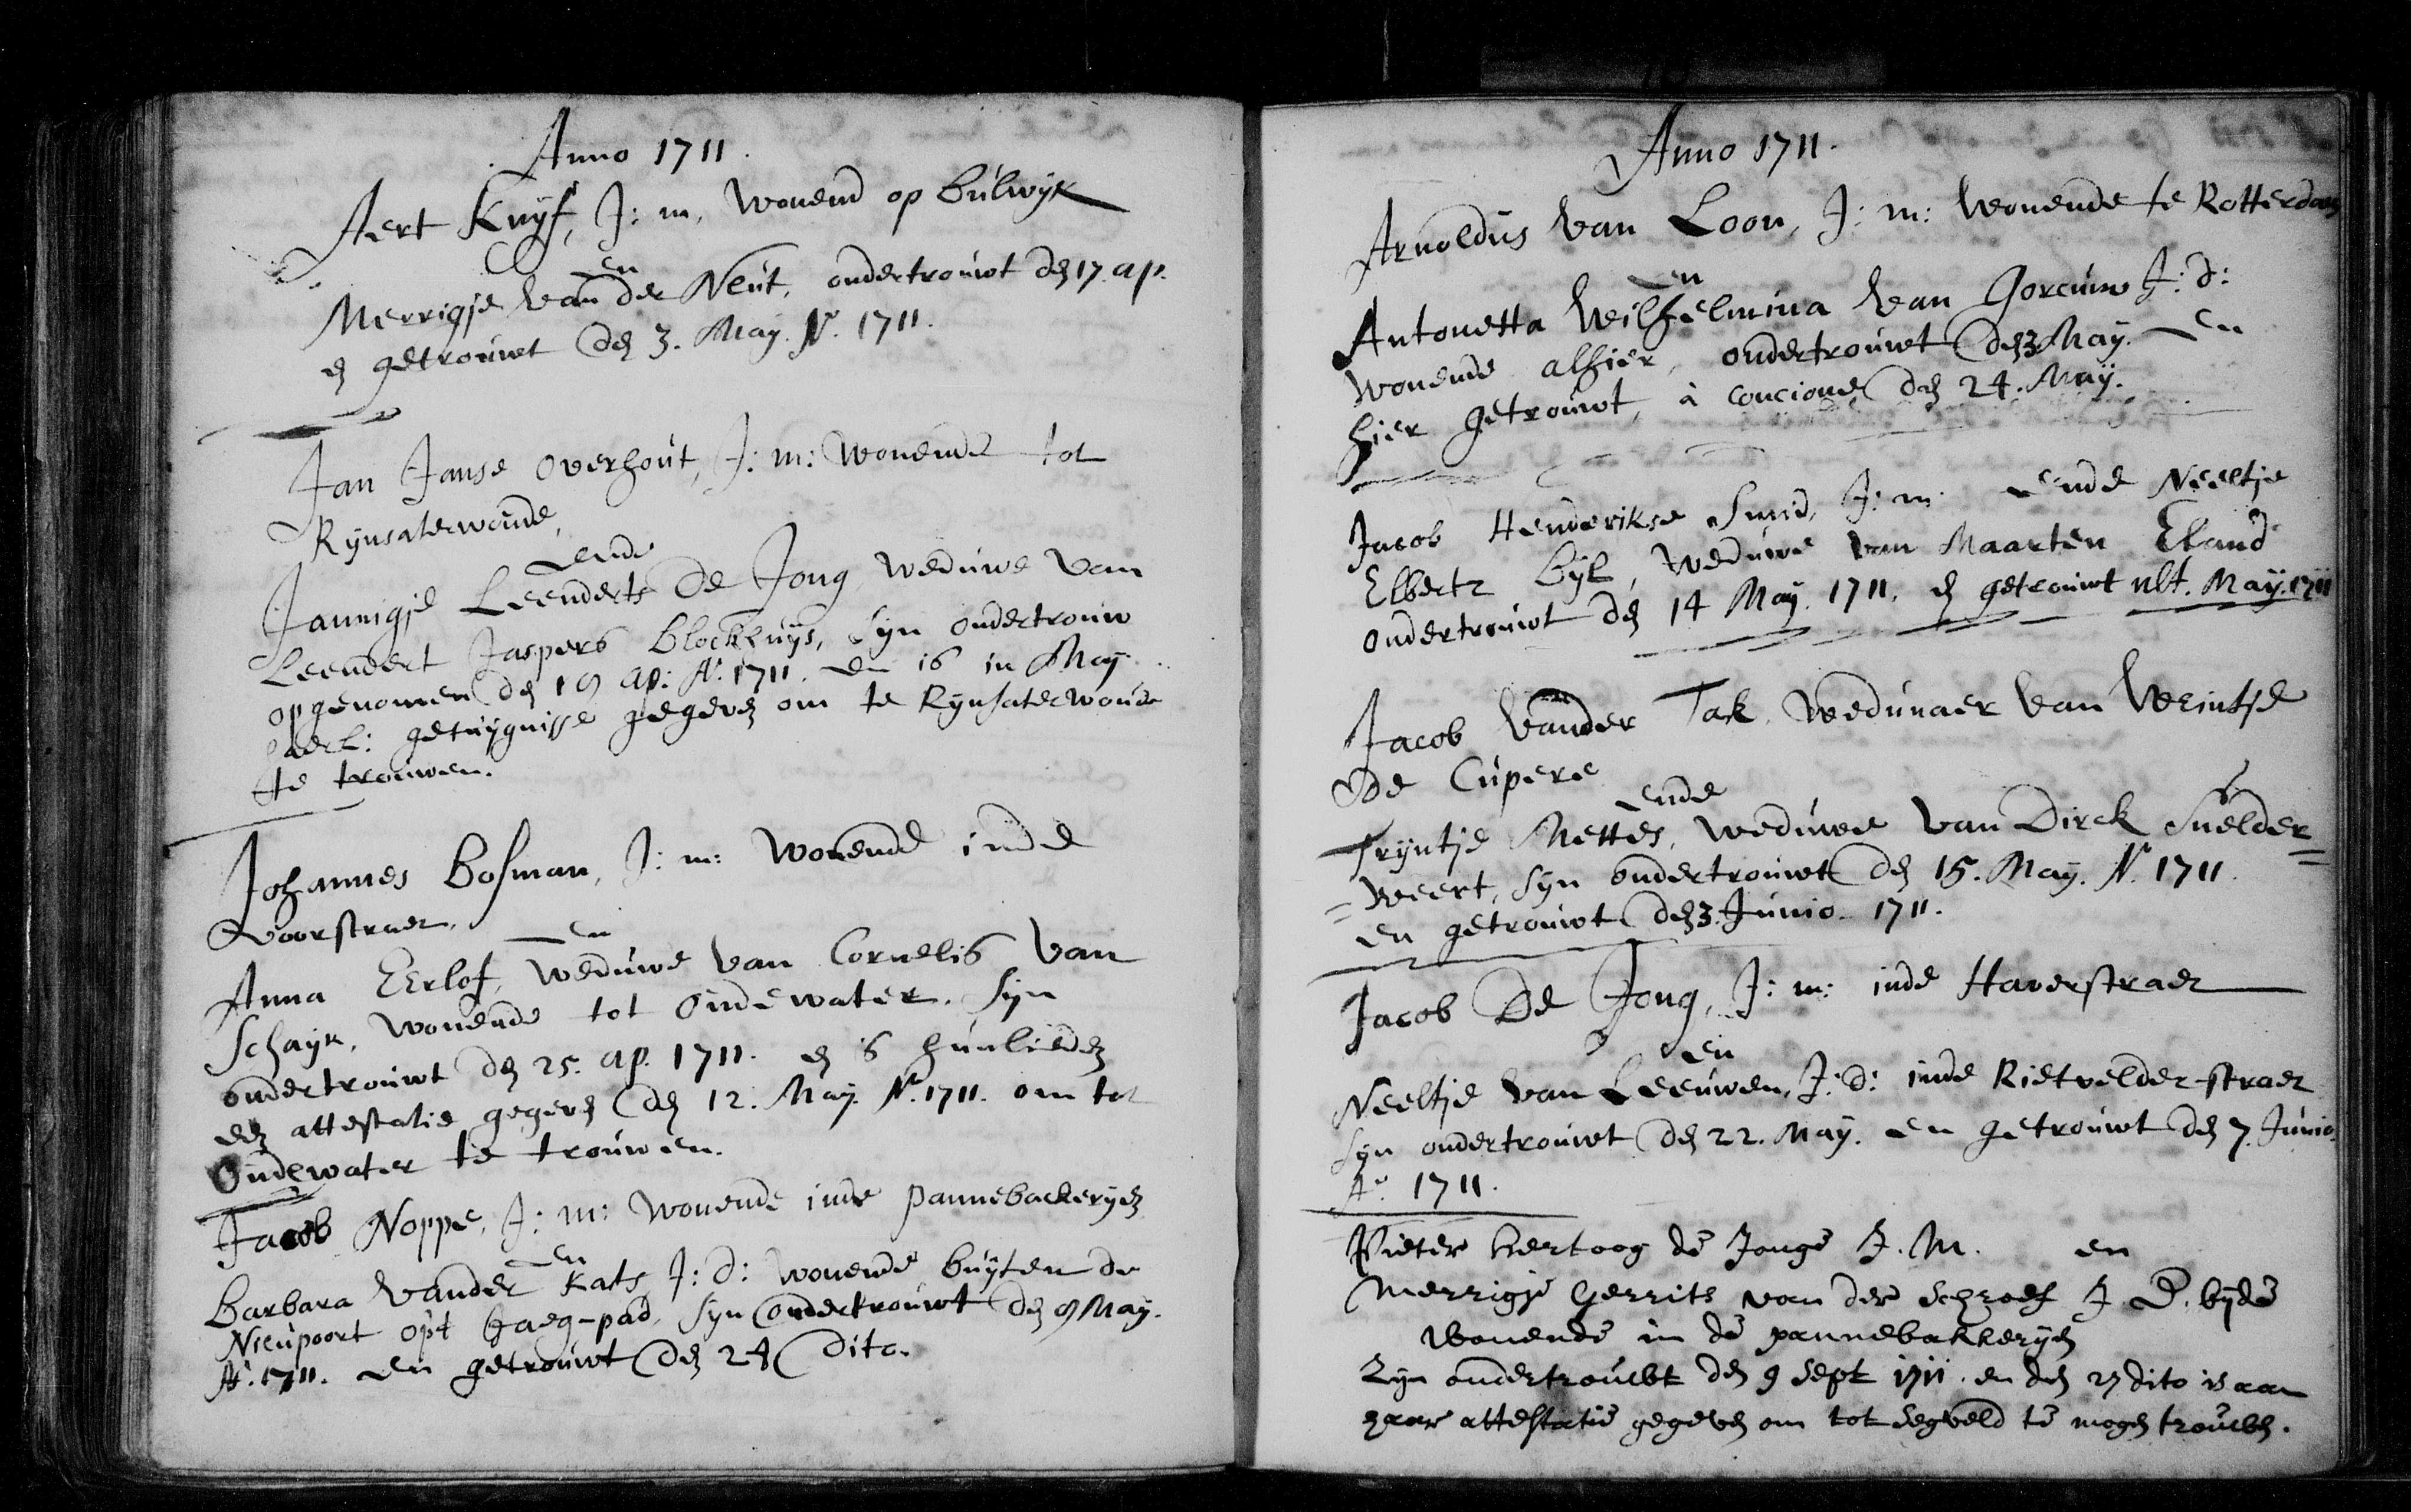 Anno 1711.
Aert Knijf, J: m, wonend op Bulwijk
en
Merrigje van der Neut, ondertrouwt den 17. ap.
en getrouwt den 3. May. Ao. 1711.
Jan Janse Overhout, J: m: wonende tot
Rynsaterwoude,
ende
Jannigje Leenderts De Jong weduwe van
Leendert Jaspers Blockhuijs, syn ondertrouw
opgenomen den 19 ap: Ao. 1711. en is in May
getuygnisse gegeven om te Rynsaterwoude
te trouwen.
Johannes Bosman, J: m: wonende inde
Voorstraet,
en
Anna EErlof, weduwe van Cornelis van
Schayk, wonende tot Oudewater. syn
ondertrouwt den 25. ap. 1711. en is hunlieden
een attestatie gegeven den 12. May. Ao. 1711. om tot
Oudewater te trouwen.
Jacob Noppe, J: m: wonende inde pannebackeryen
en
Barbara vander Kats J: d: wonende buyten de
Nieupoort opt Jaeg-pad, syn ondertrouwt den 9 May.
Ao. 1711. en getrouwt den 24 dito.
Anno 1711.
Arnoldus van Loon, J: m: wonende te Rotterdam
en
Antonetta Wilhelmina van Gorcum J: d:
wonende alhier, ondertrouwt den 3 May. en
hier getrouwt, à concione den 24. Maÿ.
Jacob Henderikse Smid, J: m: ende Neeltje
Elberts Byl, weduwe van Maarten Eland
ondertrouwt den 14 May. 1711. en getrouwt ult. Maÿ. 1711
Jacob vander Tak, wedunaer van Weintje
de Cupere
ende
Tryntje Mettes, weduwe van Dirck Snelder=
=weert, syn ondertrouwt den 15. May. Ao. 1711.
en getrouwt den 3. Junio. 1711.
Jacob De Jong, J: m: inde Haverstraet
en
Neeltje van Leeuwen, J: d: inde Rietvelder-straet
syn ondertrouwt den 22. Maÿ. en getrouwt den 7. Junio.
Ao. 1711.
Pieter Hertoog de Jonge J. M. en
Merrigje Gerrits van der Schroef J. D. byde
wonende in de pannebakkeryen
Zyn ondertrouwt den 9 Sept 1711. en den 27 dito is aan
haar attestatie gegeven om tot Segveld te mogen trouwen.